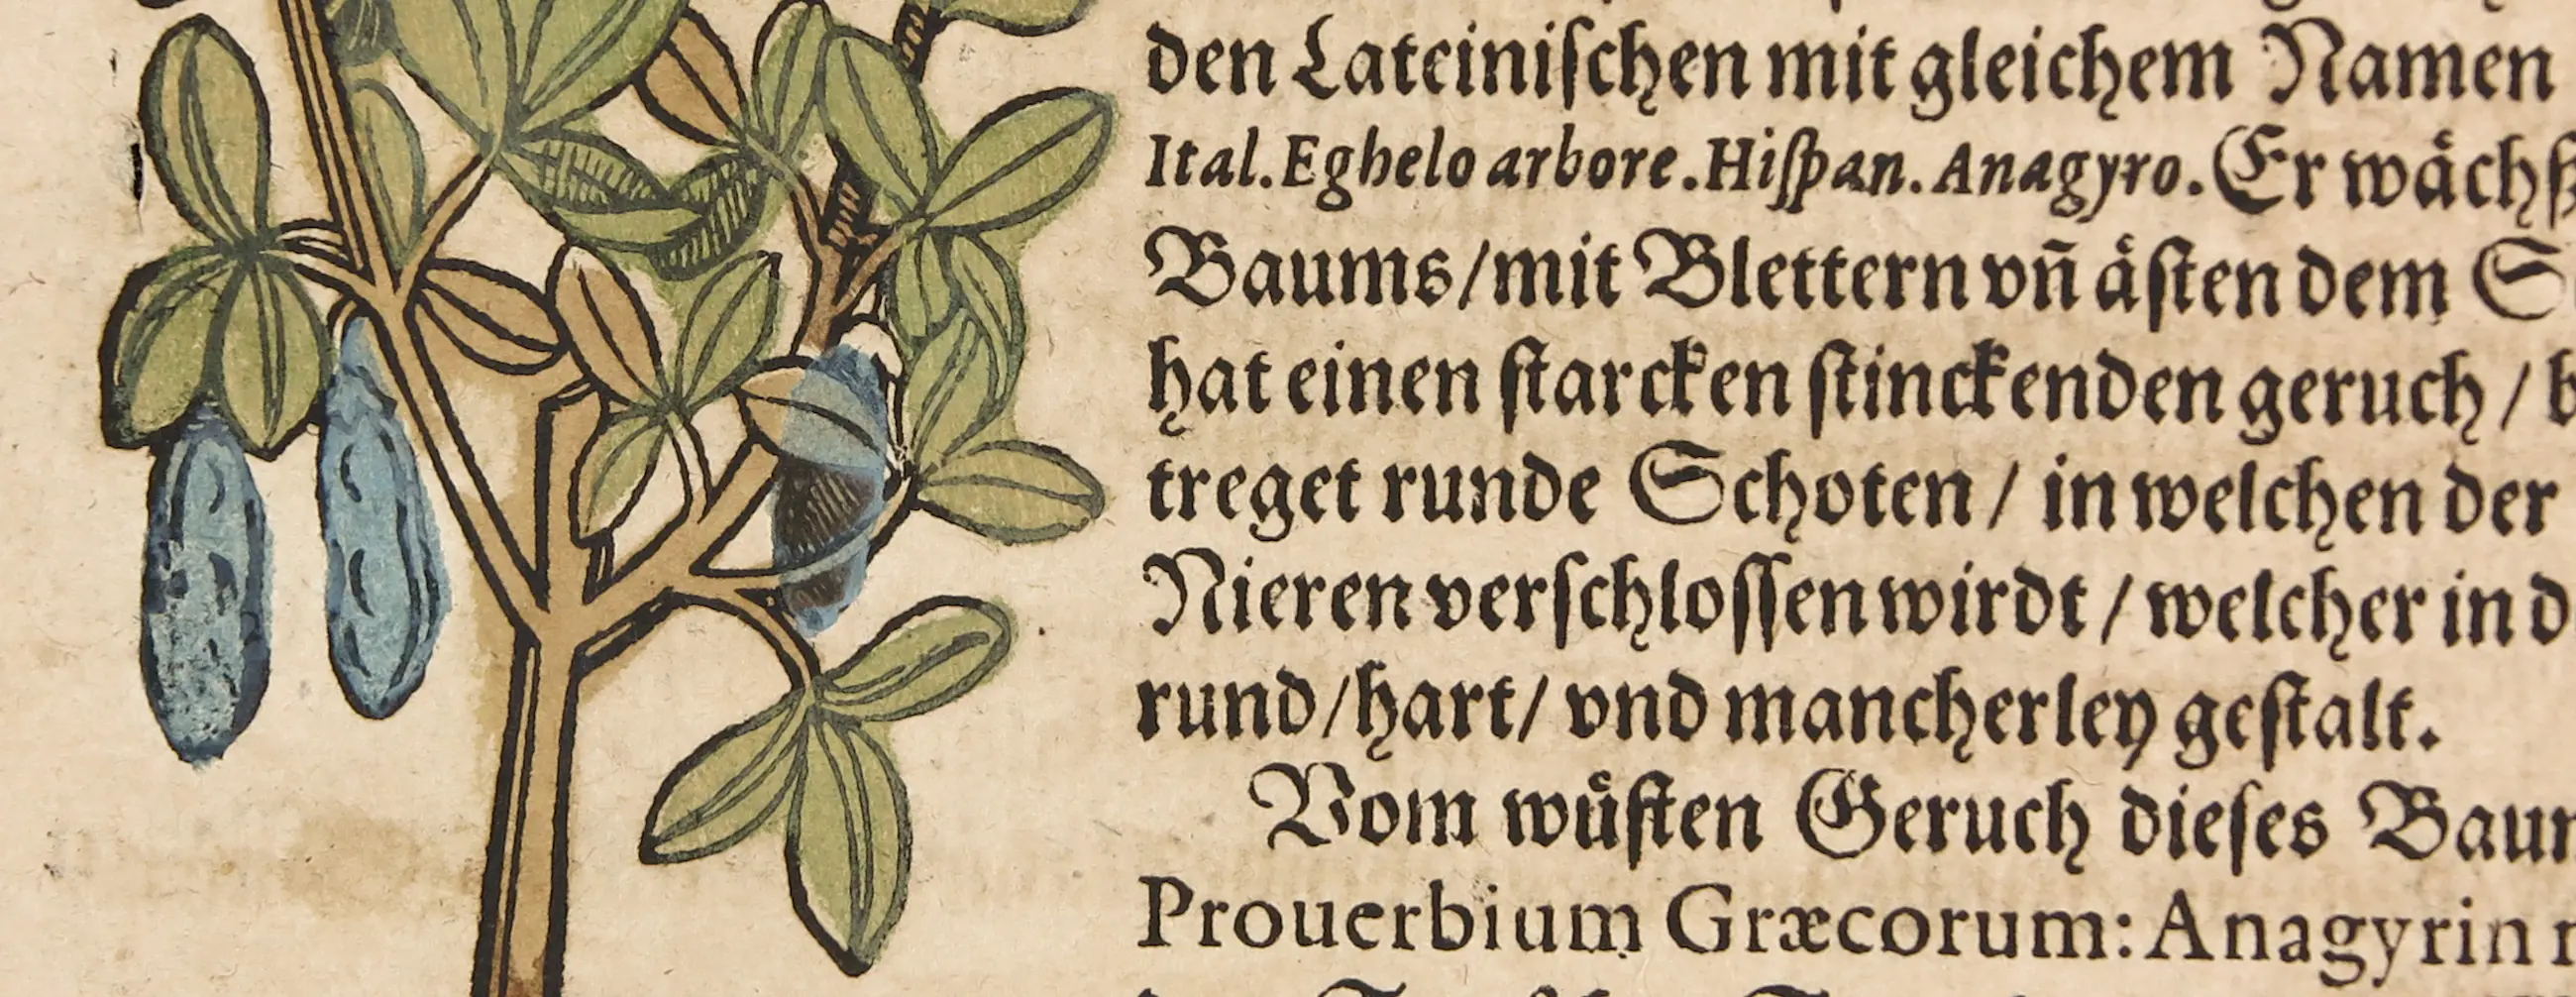 den Lateiniſchen mit gleichem Namen
Ital. Eghelo arbore. Hiſpan. Anagyro. Er waͤchſ
Baums / mit Blettern vñ aͤſten dem S
hat einen ſtarcken ſtinckenden geruch / b
treget runde Schoten / in welchen der
Nieren verſchloſſen wirdt / welcher in d
rund / hart / vnd mancherley geſtalt.
Vom wuͤſten Geruch dieſes Baum
Prouerbium Græcorum: Anagyrin